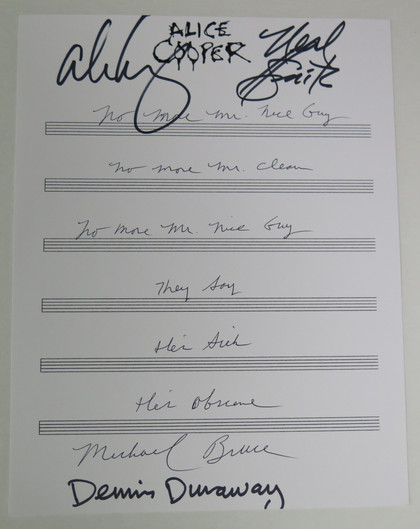 Alice
ALICE COOPER
Neal Smith
No More Mr. Nice Guy
No more Mr. Clean
No More Mr. Nice Guy
They Say
He's Sick
He's Obscene
Michael Bruce
Dennis Dunaway